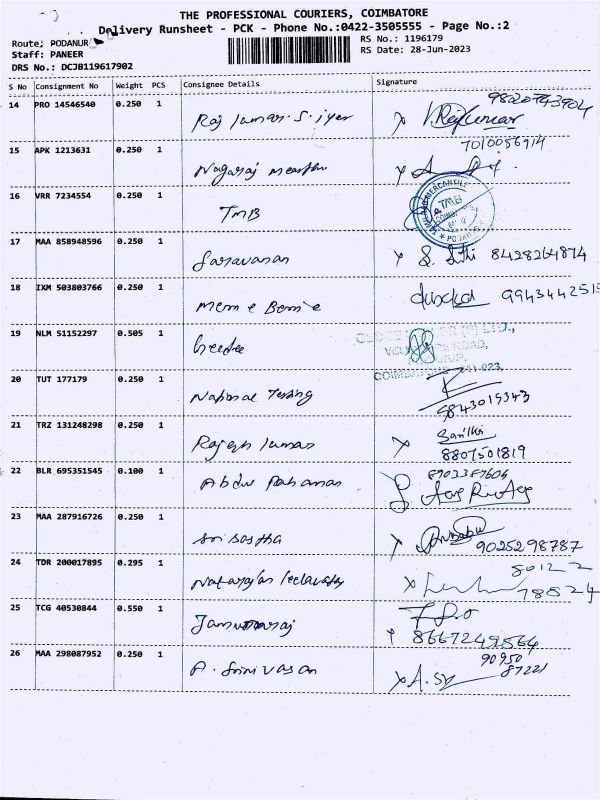 THE PROFESSIONAL COURIERS, COIMBATORE
Delivery Runsheet - PCK - Phone No.:0422-3505555 - Page No.:2
Route: PODANUR
RS No.: 1196179
Staff: PANEER
RS Date: 28-Jun-2023
DRS No.: DCJB119617902
S No Consignment No Weight PCS Consignee Details Signature
14 PRO 14546540 0.250 1 Raj Kumar.S.iyer
15 APK 1213631 0.250 1 Nagaraj 7010056914
16 VRR 7234554 0.250 1 TMB
TMB
17 MAA 858948596 0.250 1 Saravanan 8428264874
18 IXM 503803766 0.250 1 9943442515
19 NLM 51152297 0.505 1
20 TUT 177179 0.250 1 National Testing 9843019343
21 TRZ 131248298 0.250 1 Rajesh Kumar 8807501819
22 BLR 695351545 0.100 1 Abdul Rahaman 8903387604
23 MAA 287916726 0.250 1 Sri Sastha 9025298787
24 TDR 200017895 0.295 1 Natarajan 80122
78824
25 TCG 40530844 0.550 1 8667249564
26 MAA 298087952 0.250 1 A. Srinivasan 90950
87221